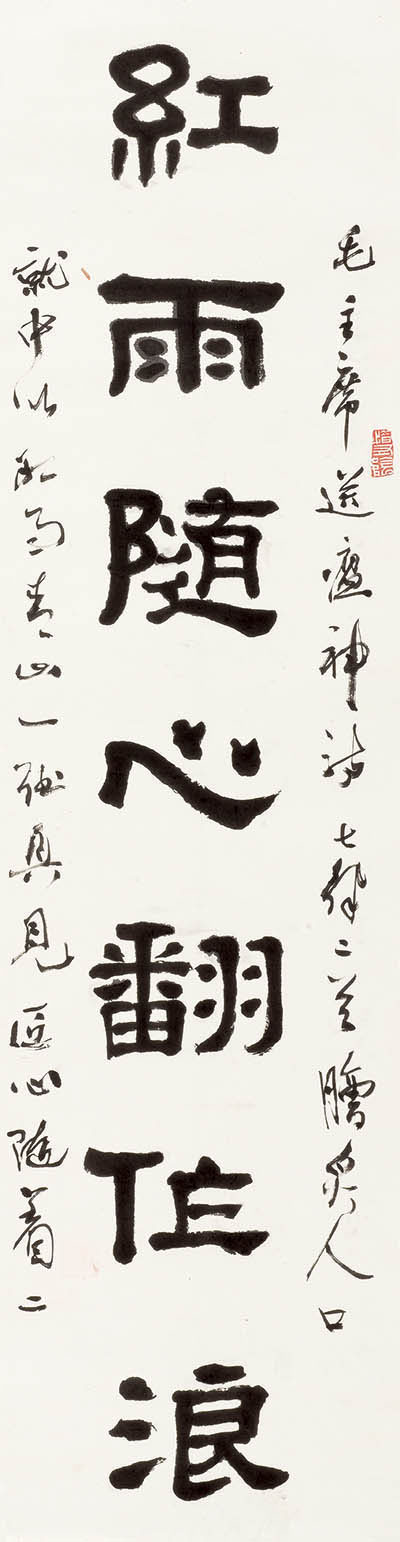 毛主席送瘟神詩七律二首膾炙人口
紅雨隨心翻作浪
就中以紅雨青山一聯具見匠心隨着二